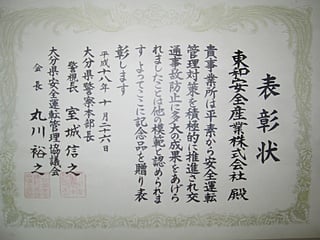 表彰状
東和安全産業株式会社 殿
貴事業所は平素から安全運転
管理対策を積極的に推進され交
通事故防止に多大の成果をあげら
れましたことは他の模範と認められま
すよってここに記念品を贈り表
彰します
平成十八年十月二十六日
大分県警察本部長
警視長 室城信之
大分県安全運転管理協議会
会長 丸川裕之